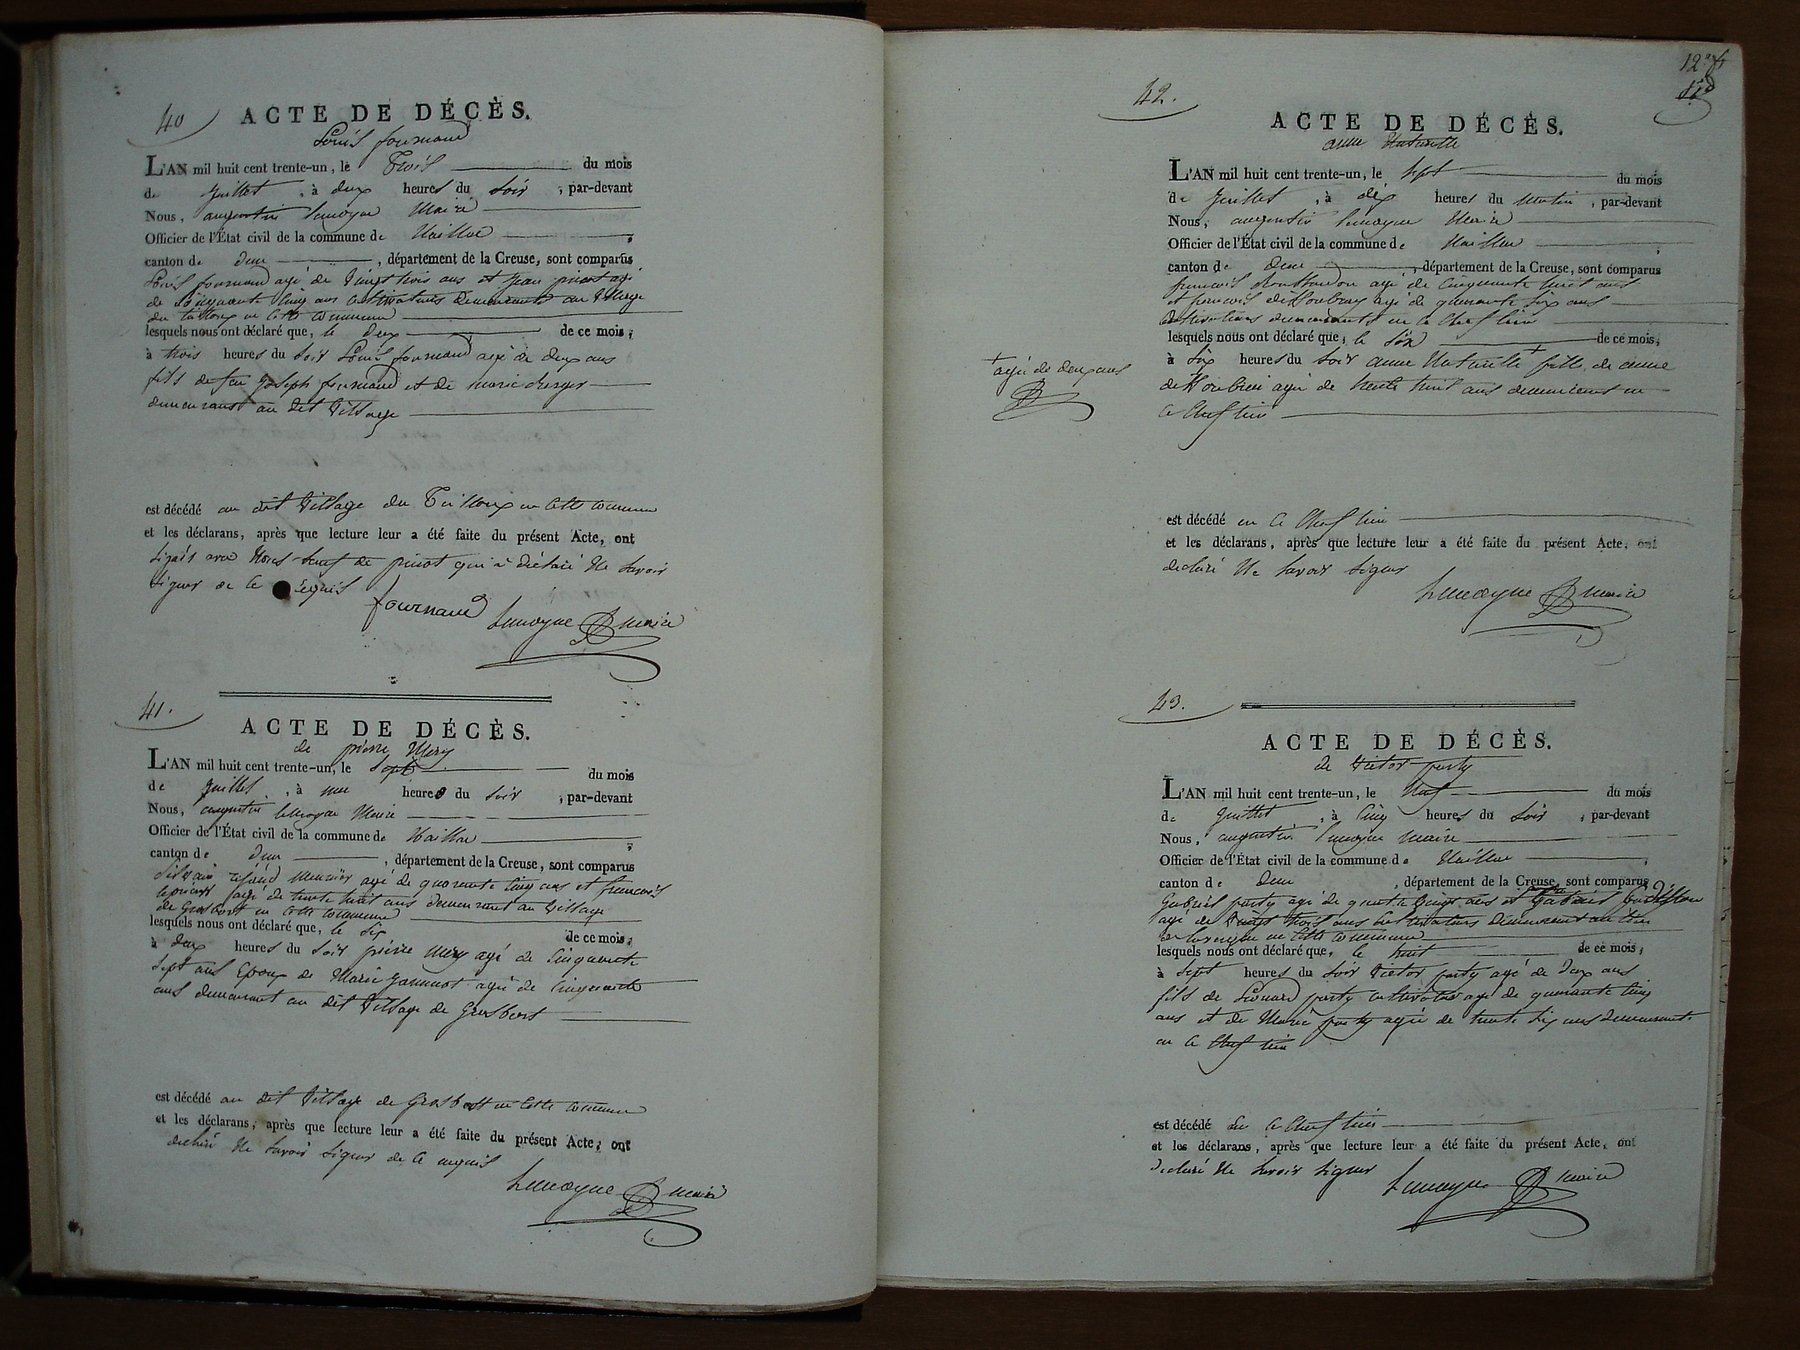 40
ACTE DE DÉCÈS.
Louis fournaud
L'AN mil huit cent trente-un, le Trois du mois
de Juillet, à deux heures du Soir, par-devant
Nous, augustin Lemoyne Maire
Officier de l'État civil de la commune de Naillac
canton de Dun, département de la Creuse, sont comparus
Louis fournaud agé de Vingt trois ans et Jean pinot agé
de Cinquante Cinq ans cultivateurs demeurants au Village
du en cette commune
lesquels nous ont déclaré que, le deux de ce mois,
à trois heures du Soir Louis fournaud agé de deux ans
fils de feu Joseph fournaud et de marie
demeurant au dit Village
est décédé au dit Village du en cette commune
et les déclarans, après que lecture leur a été faite du présent Acte, ont
signés avec Nous Sauf de pinot qui a déclaré Ne Savoir
Signer de ce Requis
fournaud Lemoyne maire
41.
ACTE DE DÉCÈS.
de pierre Mery
L'AN mil huit cent trente-un, le Sept du mois
de Juillet, à une heures du Soir, par-devant
Nous, augustin Lemoyne Maire
Officier de l'État civil de la commune de Naillac
canton de Dun, département de la Creuse, sont comparus
Silvain Meunier agé de quarante Cinq ans et francois
agé de trente huit ans demeurant au Village
de Grosbost en cette commune
lesquels nous ont déclaré que, le Six de ce mois,
à deux heures du Soir pierre Mery agé de Cinquante
Sept ans Epoux de Marie agée de Cinquante
ans demeurant au dit Village de Grosbost
est décédé au dit Village de Grosbost en cette commune
et les déclarans, après que lecture leur a été faite du présent Acte, ont
déclaré Ne Savoir Signer de ce requis
Lemoyne maire
42.
ACTE DE DÉCÈS.
anne Naturelle
L'AN mil huit cent trente-un, le Sept du mois
de Juillet, à dix heures du Matin, par-devant
Nous, augustin Lemoyne Maire
Officier de l'État civil de la commune de Naillac
canton de Dun, département de la Creuse, sont comparus
francois agé de Cinquante huit ans
et francois agé de quarante Six ans
Cultivateurs demeurants en ce Chef lieu
lesquels nous ont déclaré que, le Six de ce mois,
à Six heures du Soir anne Naturelle + fille de anne
agée de trente huit ans demeurant en
ce Chef lieu
+ agée de deux ans
est décédé en ce Chef lieu
et les déclarans, après que lecture leur a été faite du présent Acte, ont
déclaré Ne Savoir Signer
Lemoyne maire
43.
ACTE DE DÉCÈS.
de Victor party
L'AN mil huit cent trente-un, le Neuf du mois
de Juillet, à Cinq heures du Soir, par-devant
Nous, augustin Lemoyne maire
Officier de l'État civil de la commune de Naillac
canton de Dun, département de la Creuse, sont comparus
Gabriel party agé de ans et Gabriel
agé de Vingt trois ans Cultivateurs demeurant au
en cette commune
lesquels nous ont déclaré que, le huit de ce mois,
à Sept heures du Soir Victor party agé de Deux ans
fils de Léonard party cultivateur agé de quarante Cinq
ans et de Marie party agée de trente Six ans demeurant
en ce Chef lieu
est décédé en ce Chef lieu
et les déclarans, après que lecture leur a été faite du présent Acte, ont
déclaré Ne Savoir Signer
Lemoyne maire